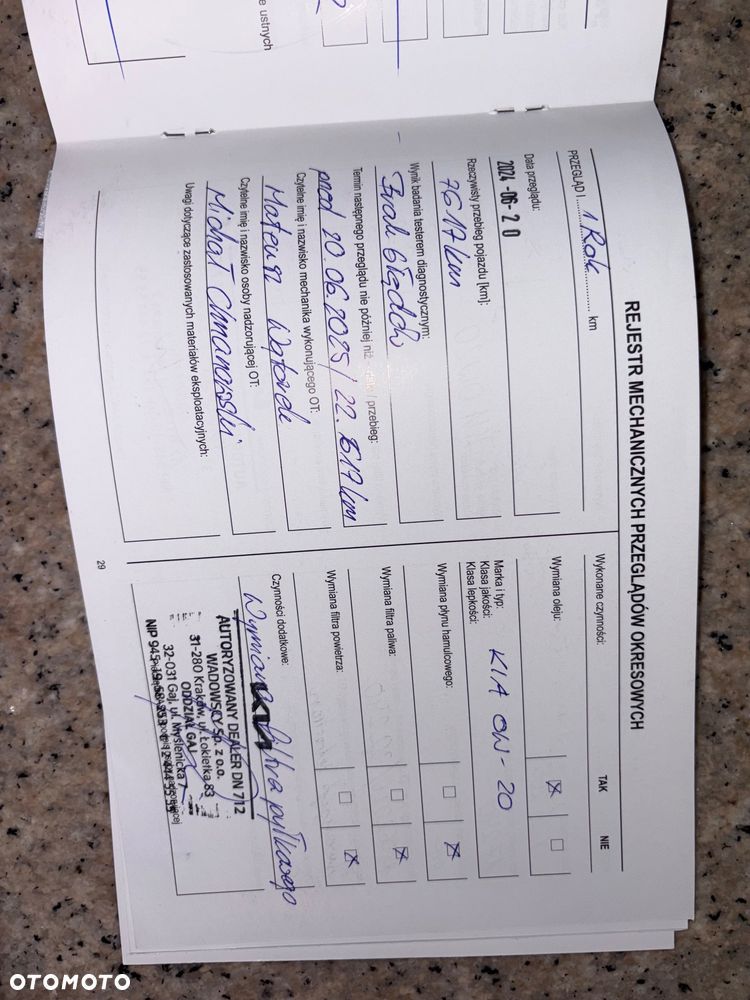 e ustnych
REJESTR MECHANICZNYCH PRZEGLĄDÓW OKRESOWYCH
PRZEGLĄD I.......1 Rok.......... km
Data przeglądu:
2024 -06- 2 0
Rzeczywisty przebieg pojazdu [km]:
7617 km
Wynik badania testerem diagnostycznym:
Brak błędów
Termin następnego przeglądu nie później niż - data / przebieg:
przed 20.06.2025 / 22.617 km
Czytelne imię i nazwisko mechanika wykonującego OT:
Mateusz
Czytelne imię i nazwisko osoby nadzorującej OT:
Michał
Uwagi dotyczące zastosowanych materiałów eksploatacyjnych:
Wykonane czynności: TAK NIE
Wymiana oleju: ☒ ☐
Marka i typ:
Klasa jakości:
Klasa lepkości:
KIA 0W-20
Wymiana płynu hamulcowego: ☐ ☒
Wymiana filtra paliwa: ☐ ☒
Wymiana filtra powietrza: ☐ ☒
Czynności dodatkowe:
Wymiana filtra pyłkowego
KIA
AUTORYZOWANY DEALER DN 712
WADOWSCY Sp. z o.o.
31-280 Kraków, ul. Łokietka 83
ODDZIAŁ GAJ
32-031 Gaj, ul. Myślenicka 7
NIP 945-19-58-253
29
OTOMOTO